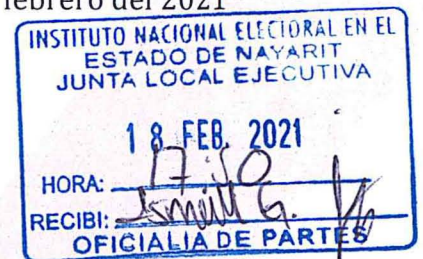 febrero del 2021
INSTITUTO NACIONAL ELECTORAL EN EL
ESTADO DE NAYARIT
JUNTA LOCAL EJECUTIVA
18 FEB. 2021
HORA: 17:50
RECIBI:
OFICIALIA DE PARTES